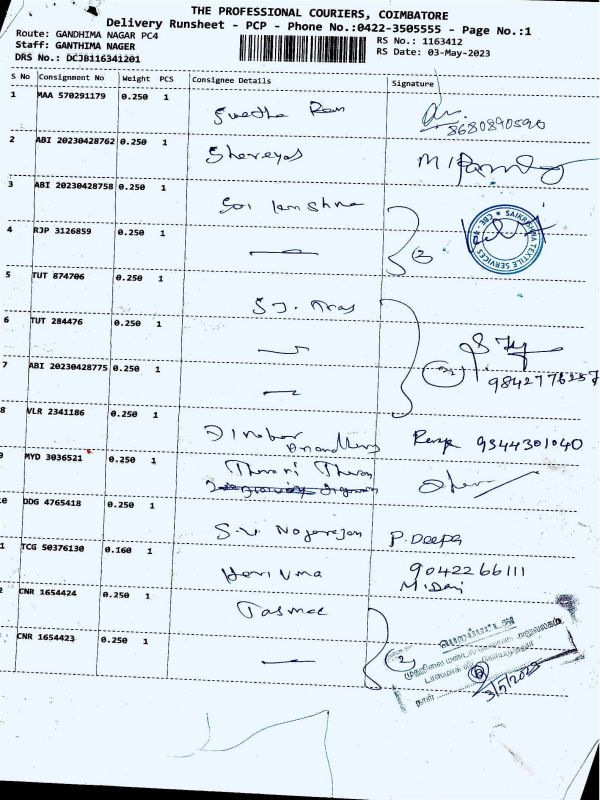 THE PROFESSIONAL COURIERS, COIMBATORE
Delivery Runsheet - PCP - Phone No.:0422-3505555 - Page No.:1
Route: GANDHIMA NAGAR PC4
RS No.: 1163412
Staff: GANTHIMA NAGER
RS Date: 03-May-2023
DRS No.: DCJB116341201
S No Consignment No Weight PCS Consignee Details Signature
1 MAA 570291179 0.250 1 Swetha Ram
8680890590
2 ABI 20230428762 0.250 1 Shereyas
3 ABI 20230428758 0.250 1
SAIKRISHNA TEXTILE SERVICES * CBE
4 RJP 3126859 0.250 1
5 TUT 874706 0.250 1 S.J. Aras
6 TUT 284476 0.250 1
7 ABI 20230428775 0.250 1
8 VLR 2341186 0.250 1 9344301040
9 MYD 3036521 0.250 1
0 DDG 4765418 0.250 1 S.V. Nagarajan P. Deepa
1 TCG 50376130 0.160 1 Hari Uma 9042266111
M. Dani
2 CNR 1654424 0.250 1 Tasmac
CNR 1654423 0.250 1 2
பெறப்பட்டது
நாள்
3/5/2023